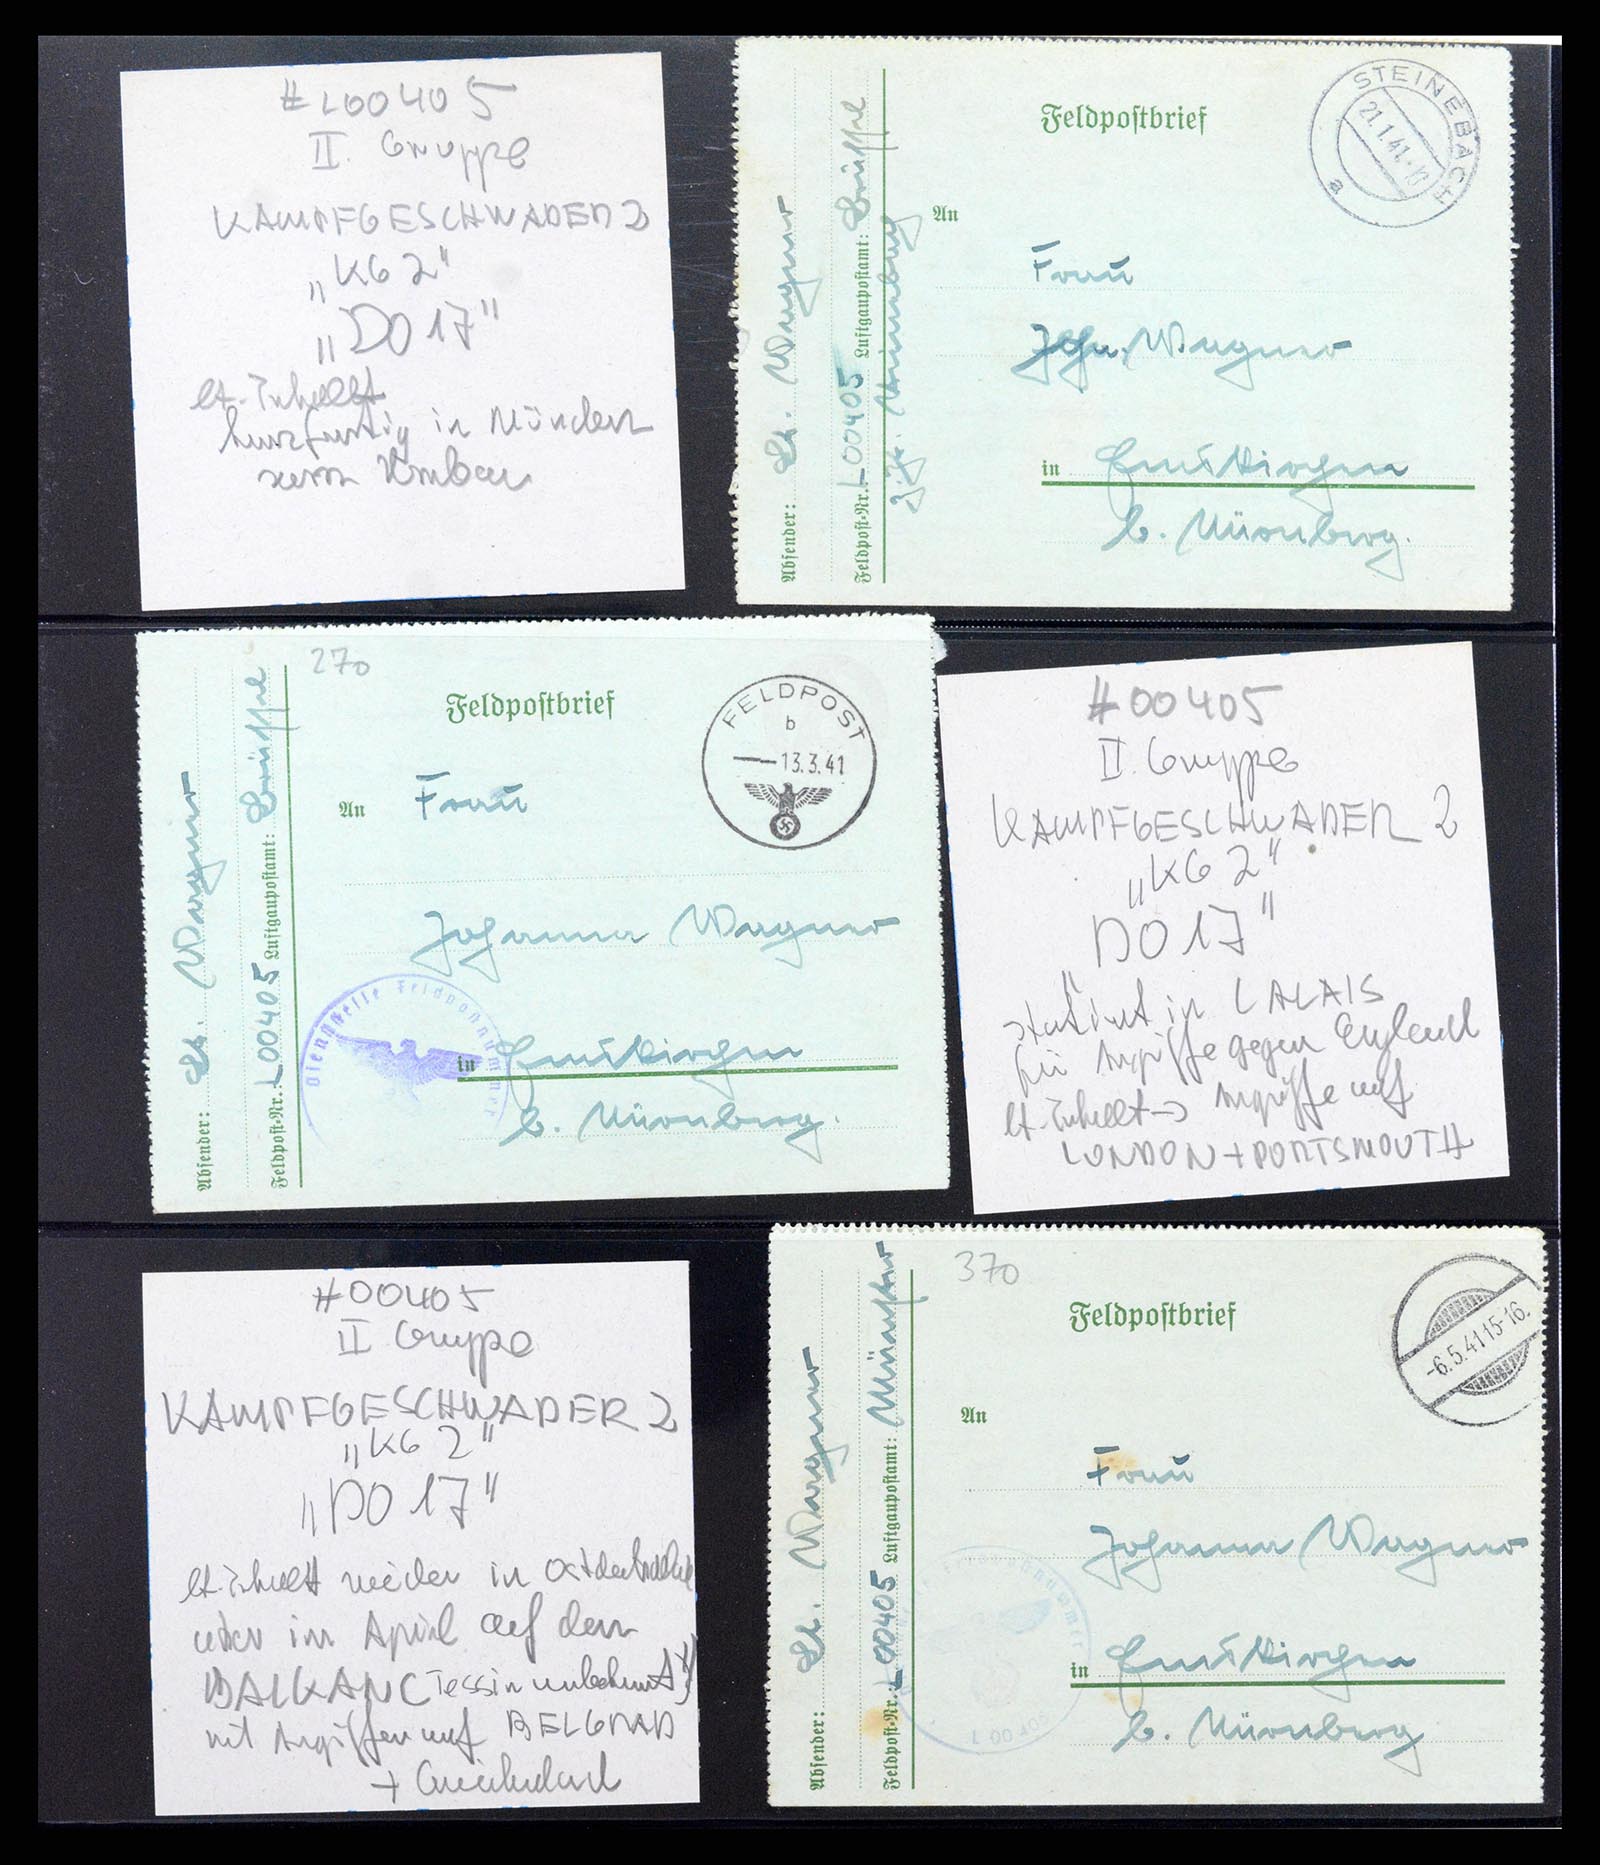 # L00405
II. Gruppe
KAMPFGESCHWADER 2
„KG 2"
„DO 17"
lt. Inhalt
kurzfristig in München
zum Umbau
Feldpostbrief
STEINEBACH
21.1.41.
a
An
Frau
Joh. Wagner
in Emskirchen
b. Nürnberg.
Absender: Lt. Wagner
Feldpost-Nr.: L00405 Luftgaupostamt: Brüssel
z. Zt. Nürnberg
270
Feldpostbrief
FELDPOST
b
13.3.41
An Frau
Johanna Wagner
in Emskirchen
b. Nürnberg.
Dienststelle Feldpostnummer
Absender: Lt. Wagner
Feldpost-Nr.: L00405 Luftgaupostamt: Brüssel
#00405
II. Gruppe
KAMPFGESCHWADER 2
„KG 2"
„DO 17"
stationt in CALAIS
für Angriffe gegen England
lt. Inhalt → Angriffe auf
LONDON + PORTSMOUTH
#00405
II Gruppe
KAMPFGESCHWADER 2
„KG 2"
„DO 17"
lt. Inhalt wieder in
aber im April auf dem
BALKAN
mit Angriffen auf BELGRAD
+ Griechenland
370
Feldpostbrief
-6.5.41 15-16.
An
Frau
Johanna Wagner
in Emskirchen
b. Nürnberg
Absender: Lt. Wagner
Feldpost-Nr.: L00405 Luftgaupostamt: Münster